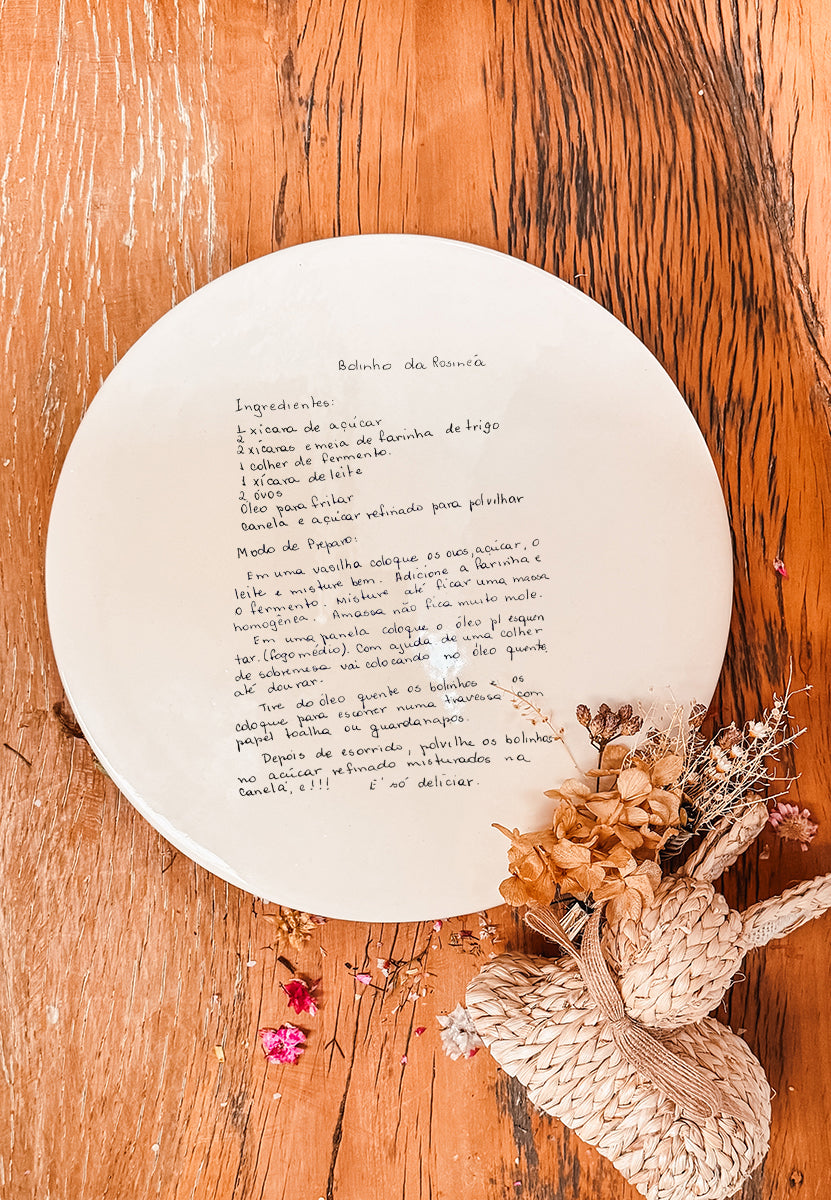 Bolinho da Rosinéa
Ingredientes:
1 xícara de açúcar
2
2 xícaras e meia de farinha de trigo
1 colher de fermento.
1 xícara de leite
2 ovos
Óleo para fritar
canela e açúcar refinado para polvilhar
Modo de Preparo:
Em uma vasilha coloque os ovos, açúcar, o
leite e misture bem. Adicione a farinha e
o fermento. Misture até ficar uma massa
homogênea. Amassa não fica muito mole.
Em uma panela coloque o óleo p/ esquen
tar. (fogo médio). Com ajuda de uma colher
de sobremesa vai colocando no óleo quente
até dourar.
Tire do óleo quente os bolinhos e os
coloque para escorrer numa travessa com
papel toalha ou guardanapos.
Depois de esorrido, polvilhe os bolinhos
no acúcar refinado misturados na
canela, e!!! E' só deliciar.